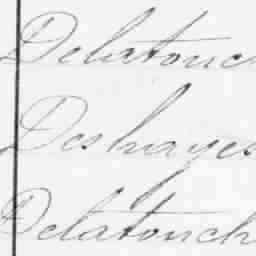 Delatouc
Deshayes
Delatouch